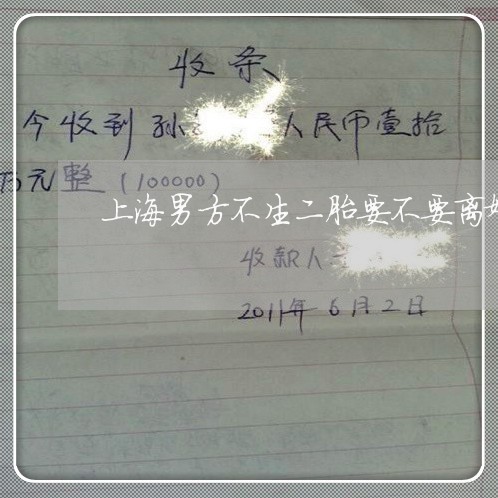 收条
今收到孙 人民币壹拾
万元整（100000）
上海男方不生二胎要不要离婚
收款人
2011年6月2日